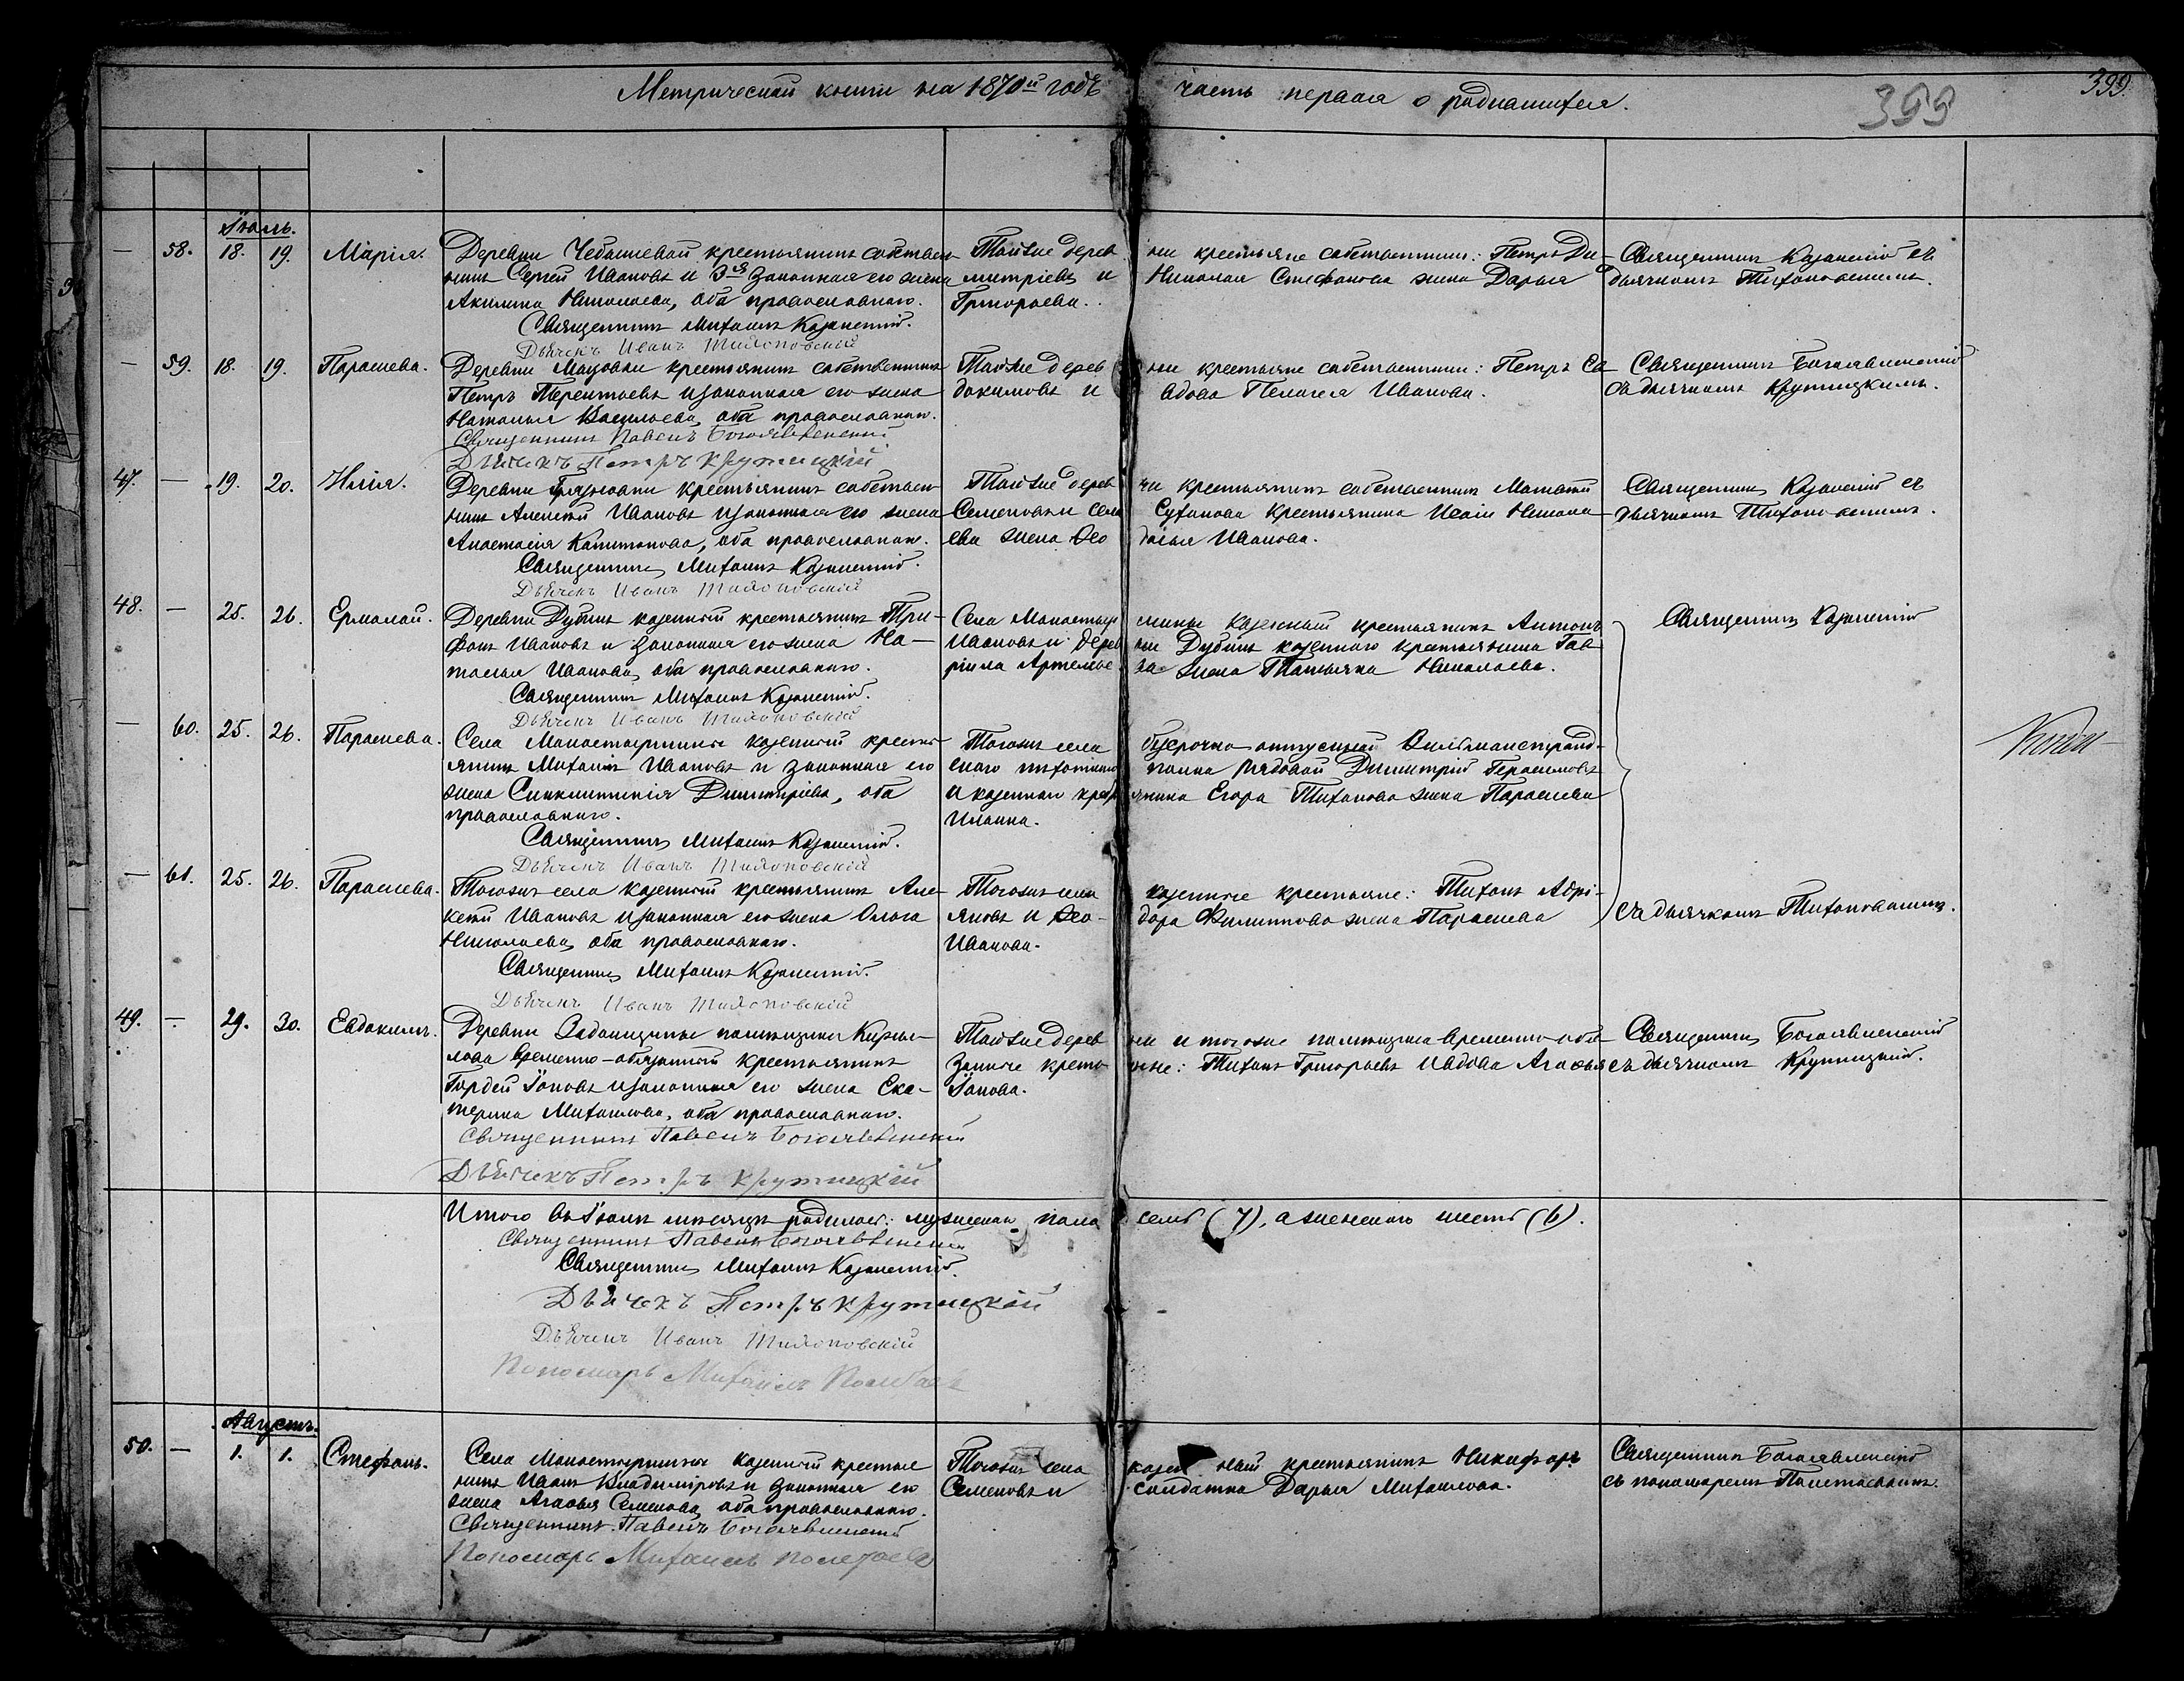 Метрической книги на 1870й годъ часть первая о родившихся.
399
399.
Іюль.
— 58. 18. 19. Марія.
Деревни Чебышевой крестьянинъ собствен-
никъ Сергѣй Ивановъ и законная его жена
Акилина Николаева, оба православнаго.
Священникъ Михаилъ Казанскій.
Дьячекъ Иванъ Тихоновскій
Тойже дерев
ни крестьяне собственники: Петръ Ди-
митріевъ и
Николая Стефанова жена Дарья
Григорьева.
Священникъ Казанскій съ
дьячкомъ Тихоновскимъ.
— 59. 18. 19. Параскева.
Деревни крестьянинъ собственникъ
Петръ Терентьевъ и законная его жена
Наталья Васильева, оба православнаго.
Священникъ Павелъ Богоявленскій
Дьячекъ Петръ Крутицкій
Тойже дерев
ни крестьяне собственники: Петръ Ев
докимовъ и
вдова Пелагея Иванова.
Священникъ Богоявленскій
съ дьячкомъ Крутицкимъ.
47. — 19. 20. Илія.
Деревни Грязновки крестьянинъ собствен-
никъ Алексѣй Ивановъ и законная его жена
Анастасія Капитонова, оба православнаго.
Священникъ Михаилъ Казанскій.
Дьячекъ Иванъ Тихоновскій
Тойже дерев
ни крестьянинъ собственникъ Матвѣй
Семеновъ и села
Суханова крестьянина Исаіи Никола-
ева жена Ѳео
досья Иванова.
Священникъ Казанскій съ
дьячкомъ Тихоновскимъ.
48. — 25. 26. Ермолай.
Деревни Дубикъ казенный крестьянинъ Три-
фонъ Ивановъ и законная его жена На-
талья Иванова, оба православнаго.
Священникъ Михаилъ Казанскій.
Дьячекъ Иванъ Тихоновскій
Села Монастыр
щины казенный крестьянинъ Антонъ
Ивановъ и дерев
ни Дубикъ казеннаго крестьянина Гав-
ріила Артемье
ва жена Татьяна Николаева.
Священникъ Казанскій
— 60. 25. 26. Параскева.
Села Монастырщины казенный кресть-
янинъ Михаилъ Ивановъ и законная его
жена Синклитикія Димитріева, оба
православнаго.
Священникъ Михаилъ Казанскій.
Дьячекъ Иванъ Тихоновскій
Тогожъ села
безсрочно-отпускной Вильманстранд-
скаго пѣхотнаго
полка рядовой Димитрій Герасимовъ
и казеннаго крест
янина Егора Тихонова жена Параскева
Ильина.
— 61. 25. 26. Параскева.
Тогожъ села казенный крестьянинъ Але-
ксѣй Ивановъ и законная его жена Ольга
Николаева, оба православнаго.
Священникъ Михаилъ Казанскій.
Дьячекъ Иванъ Тихоновскій
Тогожъ села
казенные крестьяне: Тихонъ Адрі-
яновъ и Ѳео-
дора Филиппова жена Параскева
Иванова.
съ дьячкомъ Тихоновскимъ.
49. — 29. 30. Евдокимъ.
Деревни Задонщины помѣщика Кирил-
лова временно-обязанный крестьянинъ
Гордей Іоновъ и законная его жена Ека-
терина Михаилова, оба православнаго.
Священникъ Павелъ Богоявленскій
Дьячекъ Петръ Крутицкій
Тойже дерев
ни и тогоже помѣщика временно-обя-
занные кресть
яне: Тихонъ Григорьевъ и вдова Агафья
Іонова.
Священникъ Богоявленскій
съ дьячкомъ Крутицкимъ.
Итого въ Іюлѣ мѣсяцѣ родилось: мужескаго пола семь (7), а женскаго шесть (6).
Священникъ Павелъ Богоявленскій
Священникъ Михаилъ Казанскій.
Дьячекъ Петръ Крутицкій
Дьячекъ Иванъ Тихоновскій
Пономарь Михаилъ Полетаевъ
Августъ.
50. — 1. 1. Стефанъ.
Села Монастырщины казенный крестья
нинъ Иванъ Владиміровъ и законная его
жена Агафья Семенова, оба православнаго.
Священникъ Павелъ Богоявленскій
Пономарь Михаилъ Полетаевъ
Тогожъ села
казенный крестьянинъ Никифоръ
Семеновъ и
солдатка Дарья Михаилова.
Священникъ Богоявленскій
съ пономаремъ Полетаевымъ.